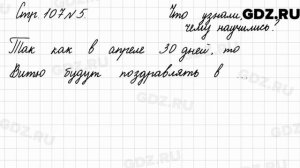 Стр 107 № 5. Что узнали,
чему научились
GDZ.RU
Так как в апреле 30 дней, то
Витю будут поздравлять в ...